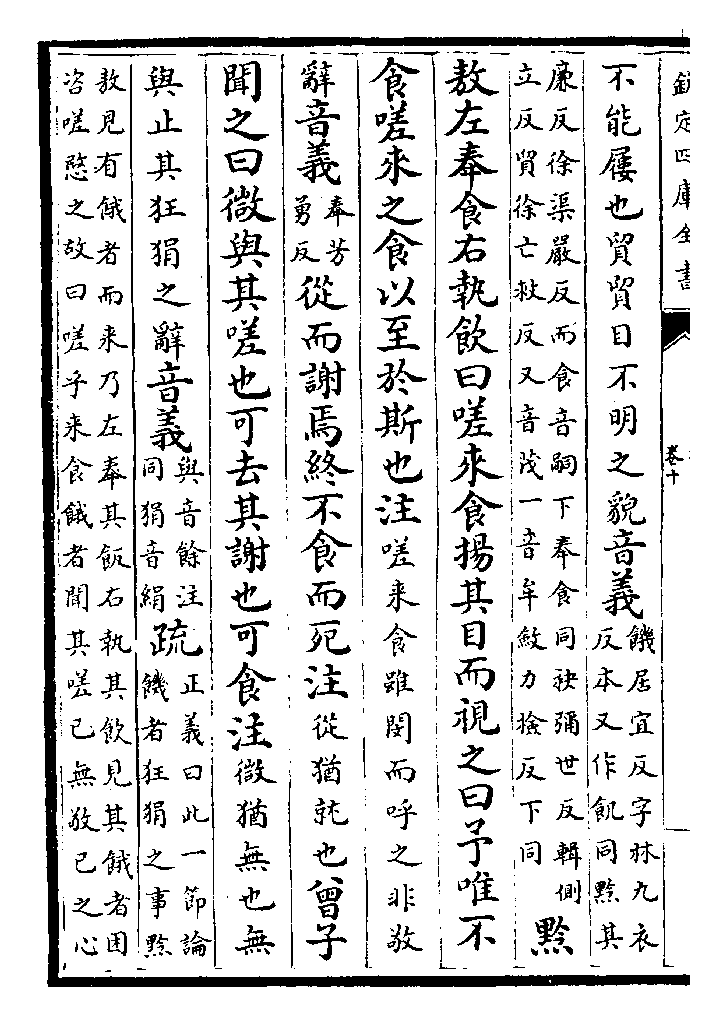 欽定四庫全書
卷十
不能屨也貿貿目不明之貌音義饑居宜反字林九衣
反本又作飢同黔其
廉反徐渠嚴反而食音嗣下奉食同袂彌世反輯側
立反貿徐亡救反又音茂一音牟斂力撿反下同
黔
敖左奉食右執飲曰嗟來食揚其目而視之曰予唯不
食嗟來之食以至於斯也注嗟來食雖閔而呼之非敬
辭音義奉芳
勇反從而謝焉終不食而死注從猶就也曾子
聞之曰微與其嗟也可去其謝也可食注微猶無也無
與止其狂狷之辭音義與音餘注
同狷音絹疏正義曰此一節論
饑者狂狷之事黔
敖見有餓者而来乃左奉其飯右執其飲見其餓者困
咨嗟愍之故曰嗟乎来食餓者聞其嗟已無敬已之心